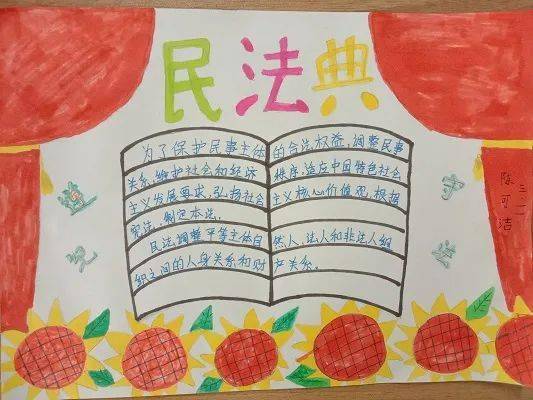 民法典
为了保护民事主体的合法权益,调整民事
关系,维护社会和经济秩序,适应中国特色社会
主义发展要求,弘扬社会主义核心价值观,根据
宪法,制定本法。
民法调整平等主体自然人、法人和非法人组
织之间的人身关系和财产关系。
守法
三.二
陈可洁